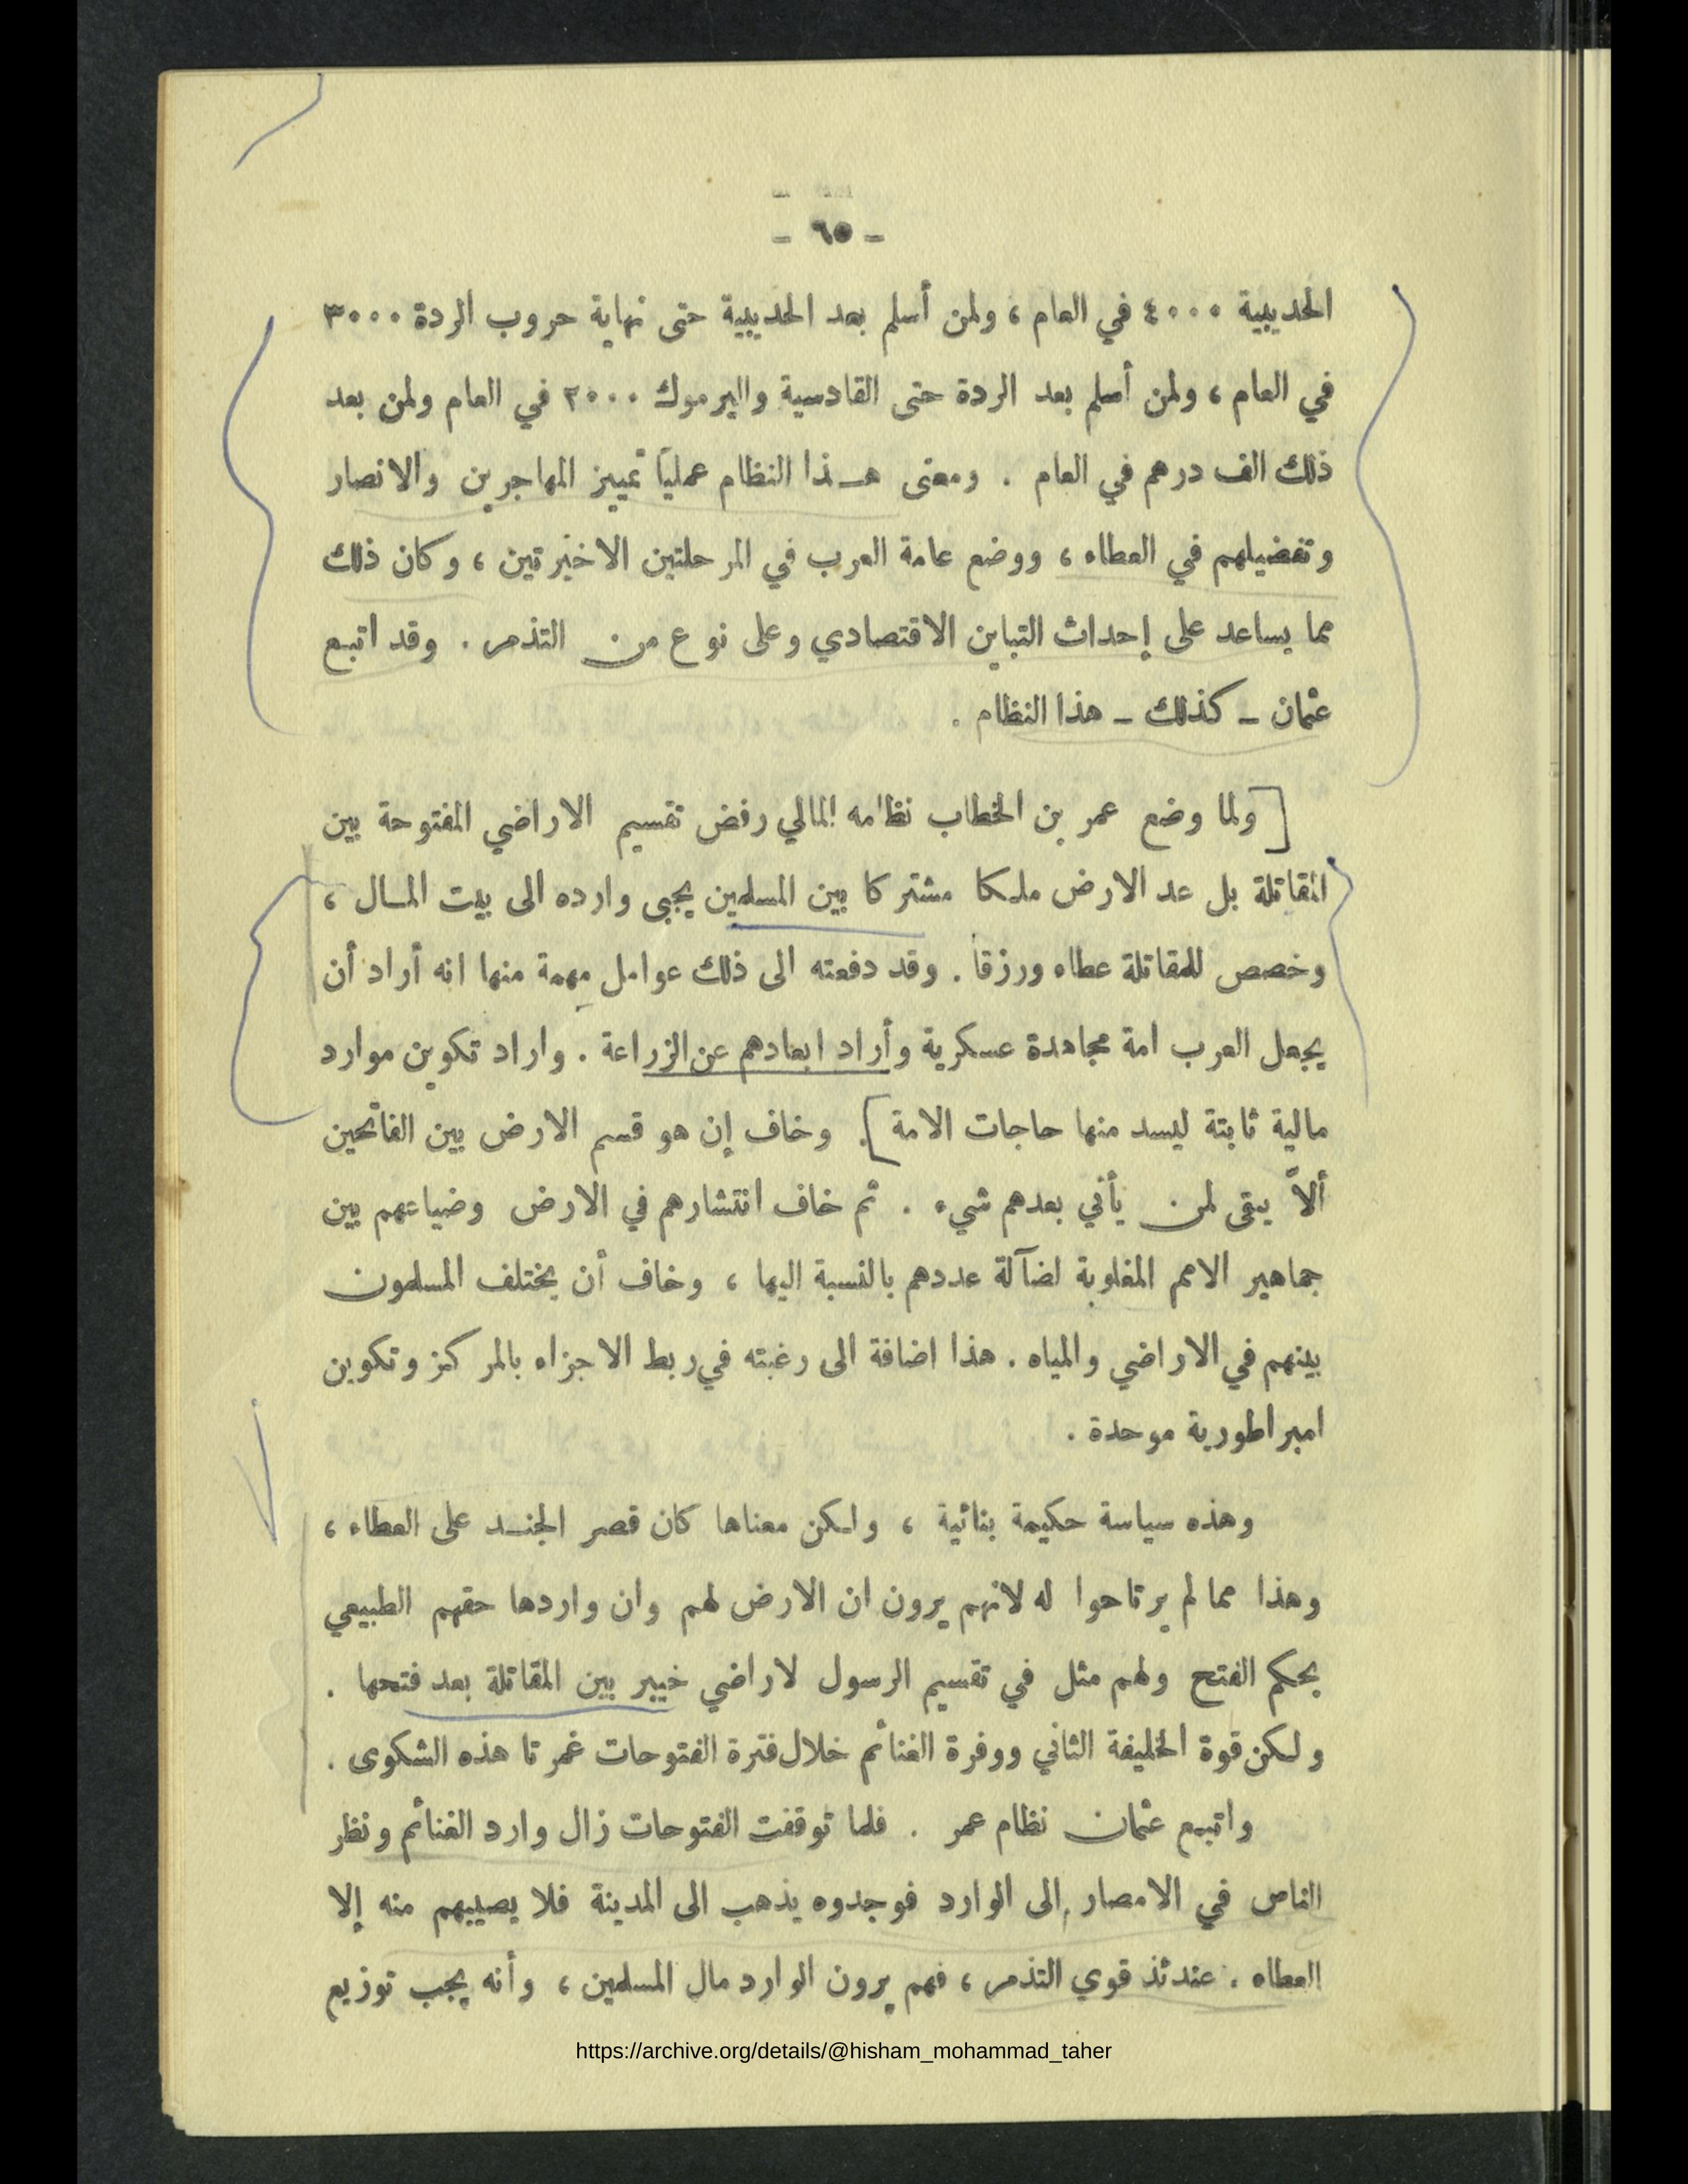 - ٦٥ -
الحديبية ٤٠٠٠ في العام ، ولمن أسلم بعد الحديبية حتى نهاية حروب الردة ٣٠٠٠
في العام ، ولمن أسلم بعد الردة حتى القادسية واليرموك ٢٠٠٠ في العام ولمن بعد
ذلك الف درهم في العام . ومعنى هـذا النظام عملياً تمييز المهاجرين والانصار
وتفضيلهم في العطاء ، ووضع عامة العرب في المرحلتين الاخيرتين ، وكان ذلك
مما يساعد على إحداث التباين الاقتصادي وعلى نوع من التذمر . وقد اتبع
عثمان - كذلك - هذا النظام .
[ولما وضع عمر بن الخطاب نظامه المالي رفض تقسيم الاراضي المفتوحة بين
المقاتلة بل عد الارض ملكا مشتركا بين المسلمين يجبى وارده الى بيت المـال ،
وخصص للمقاتلة عطاء ورزقا . وقد دفعته الى ذلك عوامل مهمة منها انه أراد أن
يجعل العرب امة مجاهدة عسكرية وأراد ابعادهم عن الزراعة . واراد تكوين موارد
مالية ثابتة ليسد منها حاجات الامة] . وخاف إن هو قسم الارض بين الفاتحين
ألاّ يبقى لمن يأتي بعدهم شيء . ثم خاف انتشارهم في الارض وضياعهم بين
جماهير الامم المغلوبة لضآلة عددهم بالنسبة اليها ، وخاف أن يختلف المسلمون
بينهم في الاراضي والمياه . هذا اضافة الى رغبته في ربط الاجزاء بالمركز وتكوين
امبراطورية موحدة .
وهذه سياسة حكيمة بنائية ، ولكن معناها كان قصر الجنـد على العطاء ،
وهذا مما لم يرتاحوا له لانهم يرون ان الارض لهم وان واردها حقهم الطبيعي
بحكم الفتح ولهم مثل في تقسيم الرسول لاراضي خيبر بين المقاتلة بعد فتحها .
ولكن قوة الخليفة الثاني ووفرة الغنائم خلال فترة الفتوحات غمرتا هذه الشكوى .
واتبع عثمان نظام عمر . فلما توقفت الفتوحات زال وارد الغنائم ونظر
الناس في الامصار الى الوارد فوجدوه يذهب الى المدينة فلا يصيبهم منه إلا
العطاء . عندئذ قوي التذمر ، فهم يرون الوارد مال المسلمين ، وأنه يجب توزيع
https://archive.org/details/@hisham_mohammad_taher